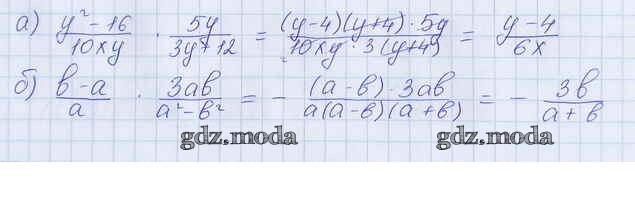 а) (y² - 16)/(10xy) · 5y/(3y+12) = ((y-4)(y+4)·5y)/(10xy·3(y+4)) = (y-4)/(6x)
б) (в-а)/а · 3ав/(а²-в²) = - ((а-в)·3ав)/(а(а-в)(а+в)) = - 3в/(а+в)
gdz.moda gdz.moda